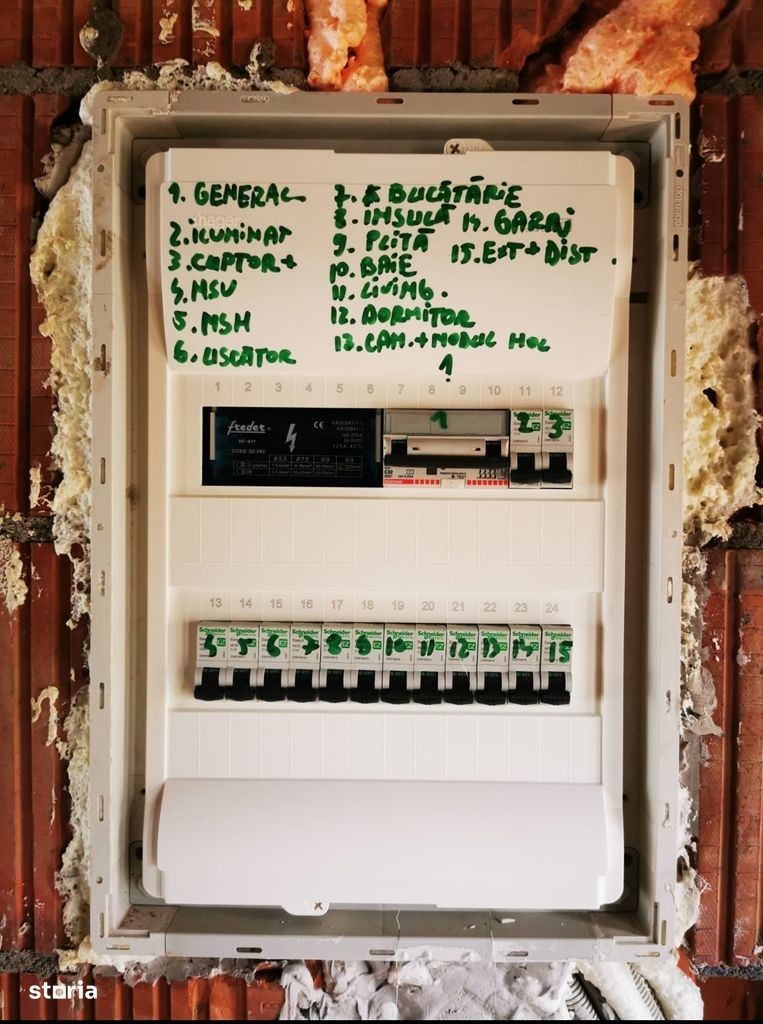 1. GENERAL
2. ILUMINAT
3. CUPTOR +
4. MSV
5. MSH
6. USCĂTOR
7. BUCĂTĂRIE
8. INSULĂ
9. PLITĂ
10. BAIE
11. LIVING.
12. DORMITOR
13. CAM. + MODUL HOL
1
14. GARAJ
15. EXT + DIST.
hager
1 2 3 4 5 6 7 8 9 10 11 12
freder
CE
1 2 3
13 14 15 16 17 18 19 20 21 22 23 24
Schneider Schneider Schneider Schneider Schneider Schneider Schneider Schneider Schneider Schneider Schneider Schneider
4 5 6 7 8 9 10 11 12 13 14 15
storia